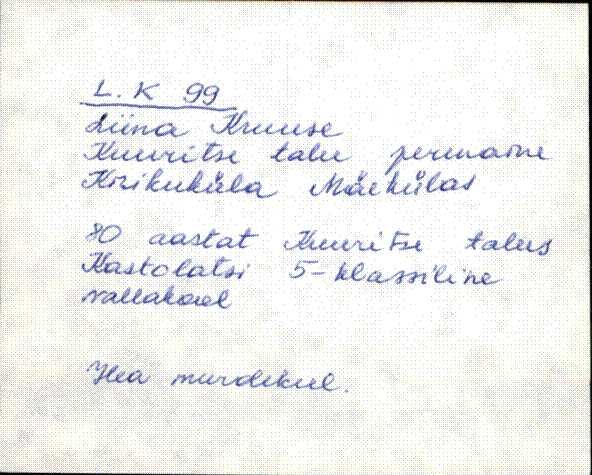 L. K 99
Liina Kruuse
Kuuritse talu perenaine
Kirikuküla Mäekülas
80 aastat Kuuritse talus
Kastolatsi 5-klassiline
vallakool
Hea murdekeel.